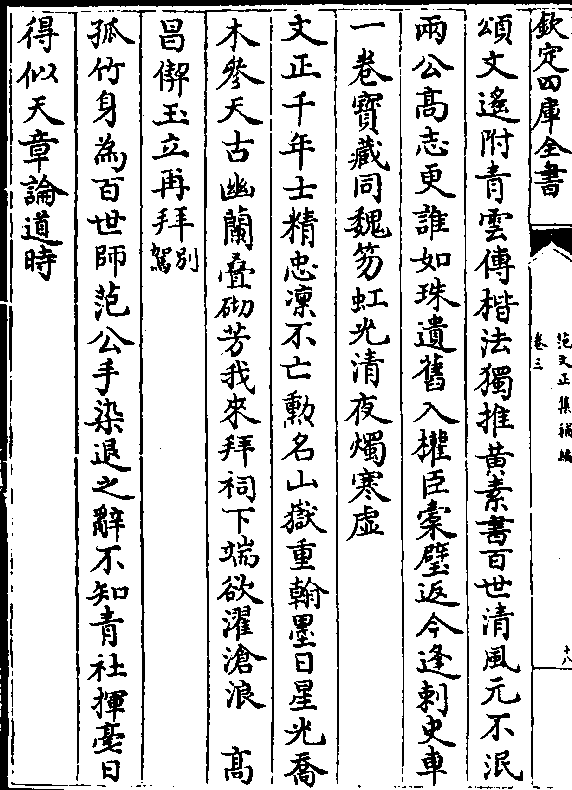 欽定四庫全書
范文正集補編
卷三
十八
頌文遙附青雲傳楷法獨推黃素書百世清風元不泯
兩公高志更誰如珠遺舊入權臣槖璧返今逢刺史車
一卷寶藏同魏笏虹光清夜燭寒虛
文正千年士精忠凜不亡勲名山嶽重翰墨日星光喬
木參天古幽蘭疊砌芳我來拜祠下端欲濯滄浪　高
昌偰玉立再拜駕別
孤竹身為百世師范公手染退之辭不知青社揮毫日
得似天章論道時